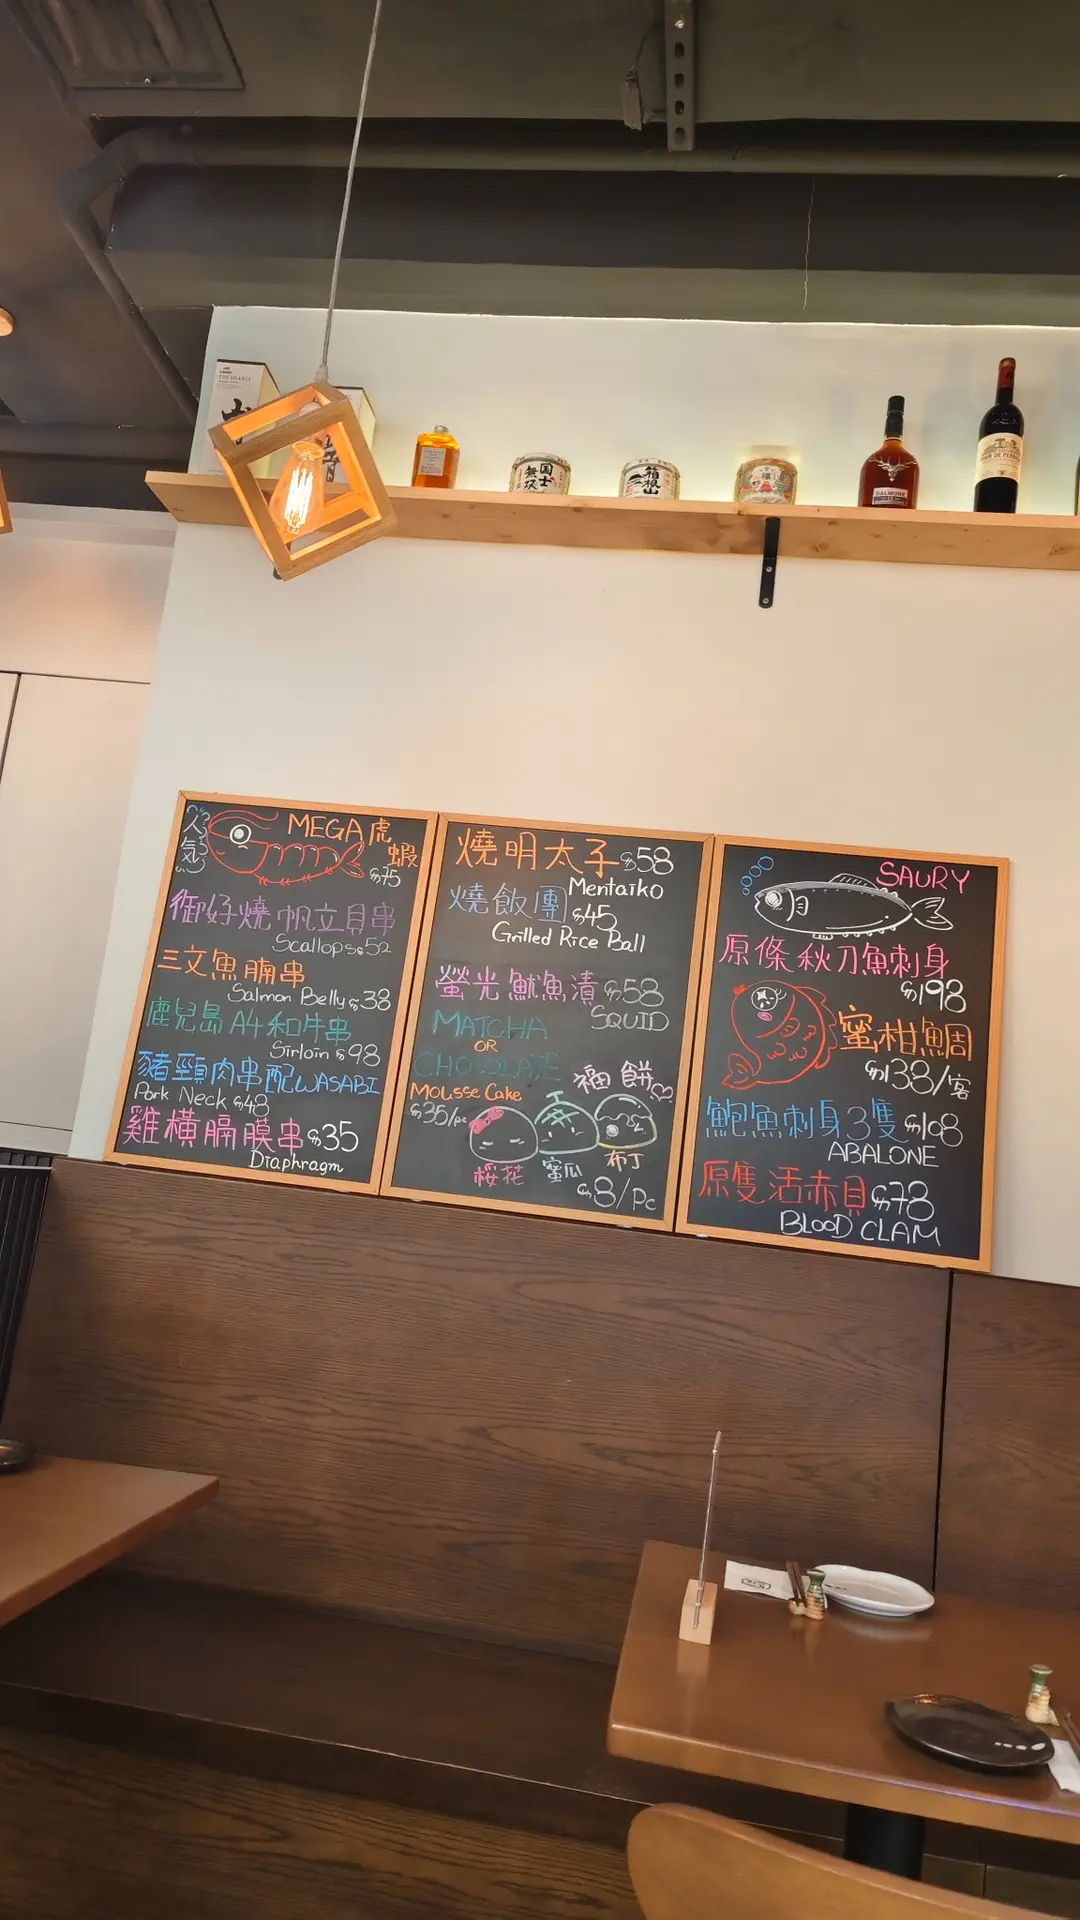 国士
無双
箱根山
DALMORE
人気
MEGA虎
蝦
$75
御好燒帆立貝串
Scallops $52
三文魚腩串
Salmon Belly $38
鹿兒島A4和牛串
Sirloin $98
豬頸肉串配WASABI
Pork Neck $48
雞橫膈膜串 $35
Diaphragm
燒明太子 $58
Mentaiko
燒飯團 $45
Grilled Rice Ball
螢光魷魚漬 $58
SQUID
MATCHA
OR
CHOCOLATE
Mousse Cake
$35/pc
福餅
桜花
蜜瓜
布丁
$8/Pc
SAURY
原條秋刀魚刺身
$198
蜜柑鯛
$138/客
鮑魚刺身3隻 $108
ABALONE
原隻活赤貝 $78
BLOOD CLAM